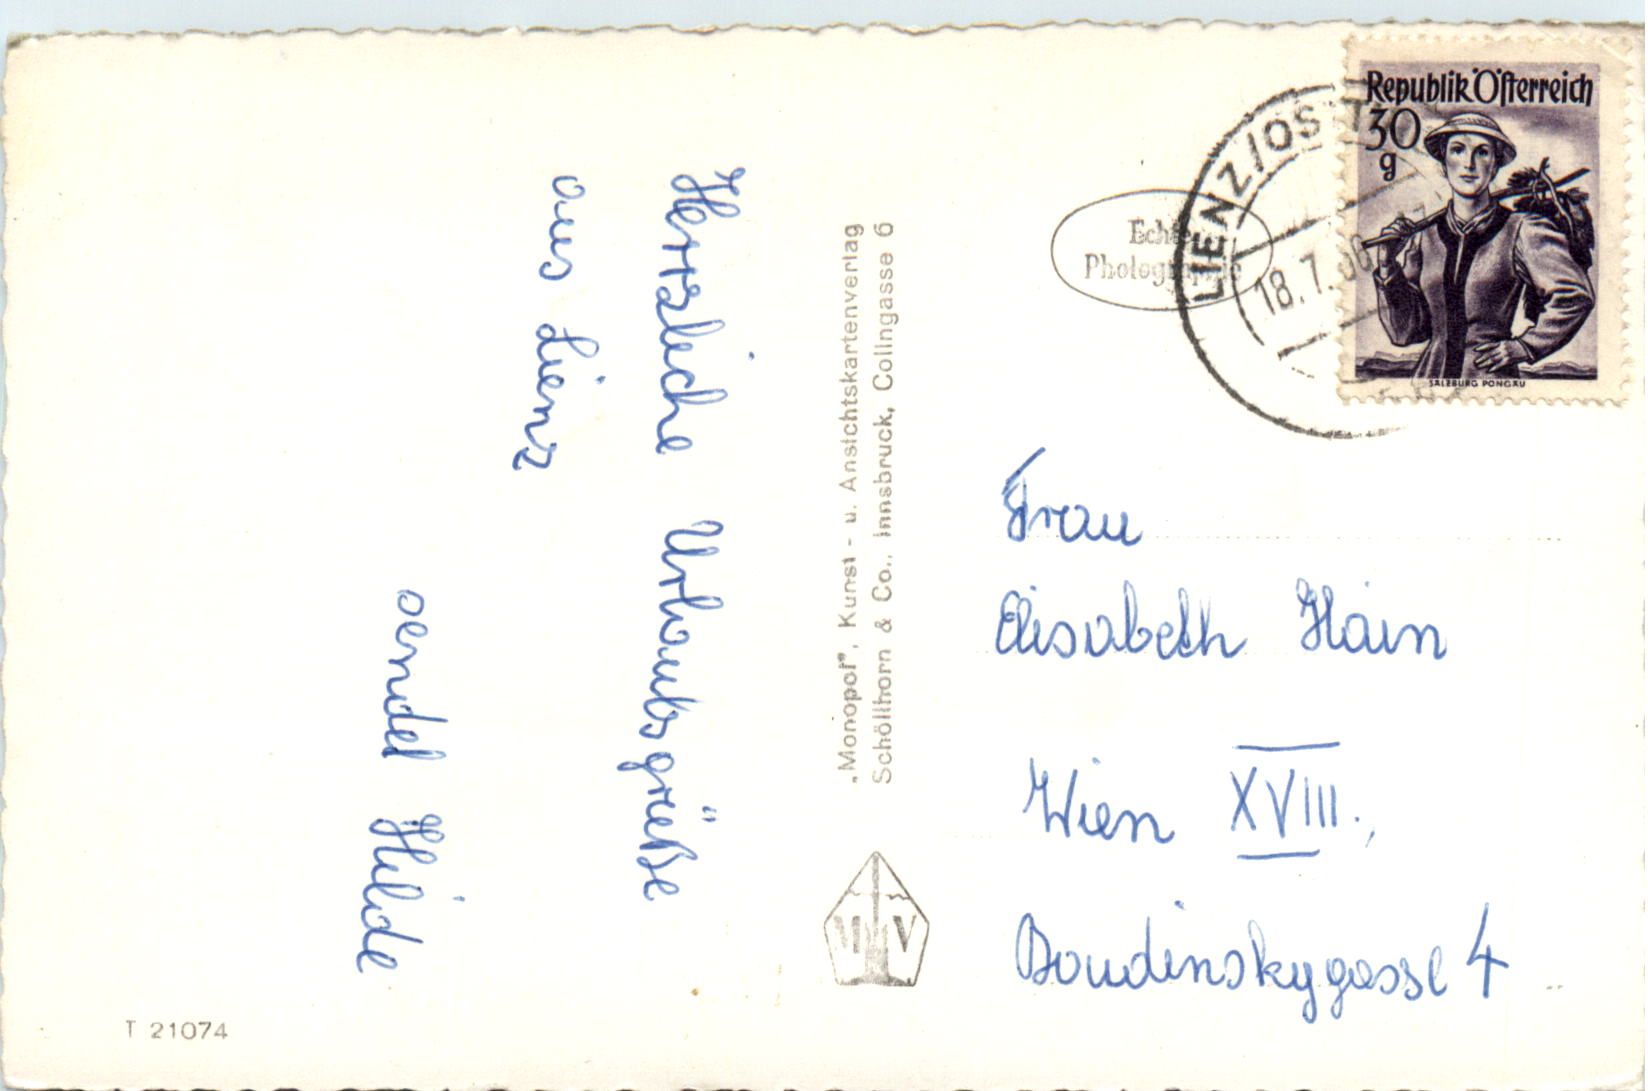 Herzliche Urlaubsgrüße
aus Lienz
sendet Hilde
„Monopol", Kunst - u. Ansichtskartenverlag
Schöllhorn & Co., Innsbruck, Collngasse 6
Echte
Photographie
LIENZ/OSTT
18.7.
Republik Österreich
30
g
SALZBURG PONGAU
Frau
Elisabeth Hain
Wien XVIII.,
4
V
T 21074